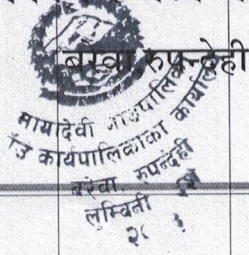 बरेवा, रुपन्देही
मायादेवी गाउँपालिका
गाउँ कार्यपालिकाको कार्यालय
बरेवा, रुपन्देही
लुम्बिनी